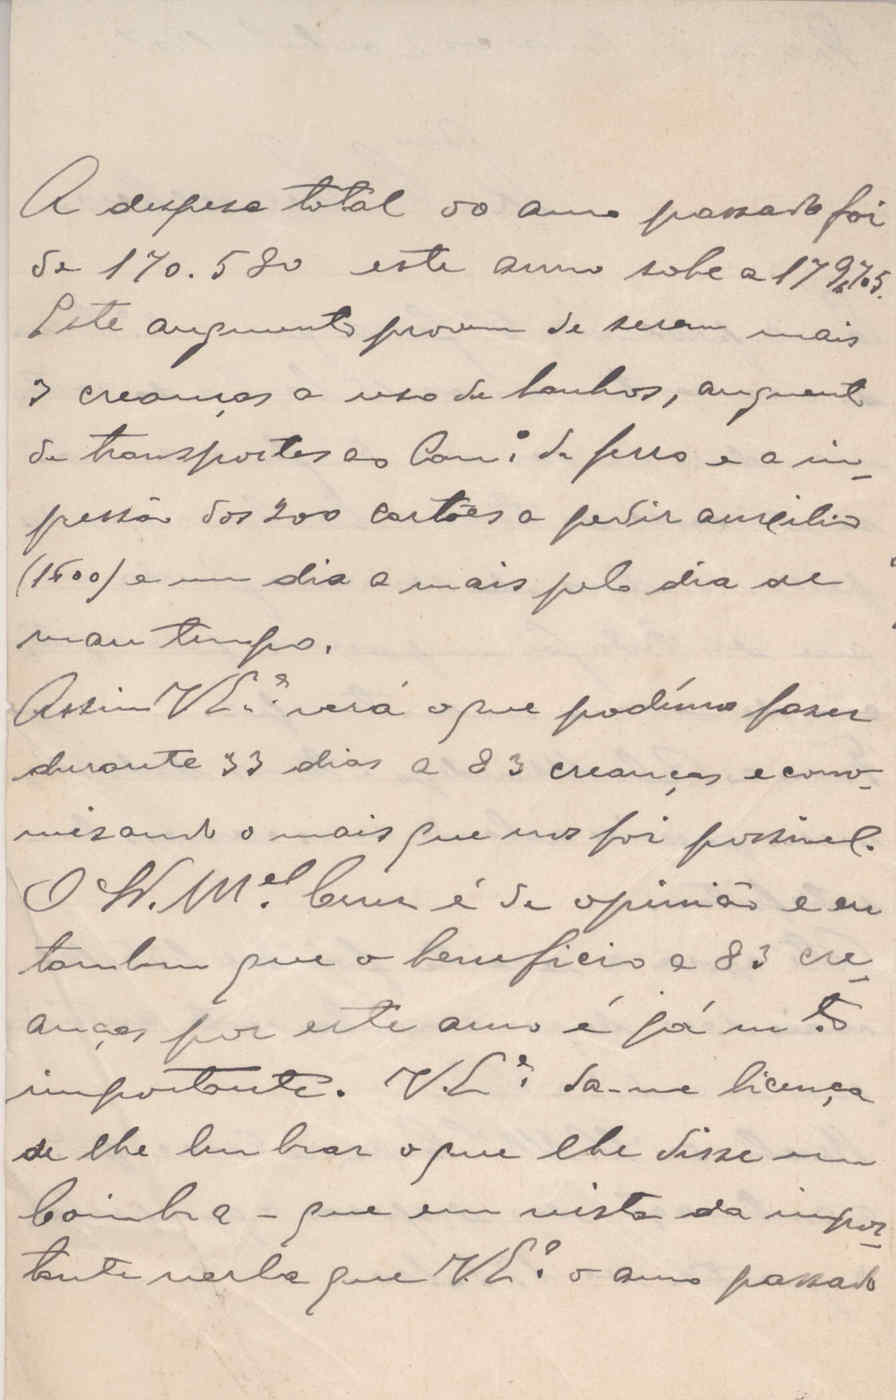 A despesa total do anno passado foi
de 170.580 este anno sobe a 179,705.
Este augmento provem de serem mais
3 creanças a uso de banhos, augmento
de transportes ao Cam.º de ferro e a im-
pressão dos 200 cartões a pedir auxilio
(1500) e um dia a mais pelo dia de
mau tempo.
Assim V. Ex.ª verá o que podémos fazer
durante 33 dias a 83 creanças econo-
misando o mais que nos foi possivel.
O Sr. M.el Cruz é de opinião e eu
tambem que o beneficio a 83 cre-
anças por este anno é já m.to
importante. V. Ex.ª da-me licença
de lhe lembrar o que lhe disse em
Coimbra - que em vista da impor-
tante verba que V. Ex.ª o anno passado